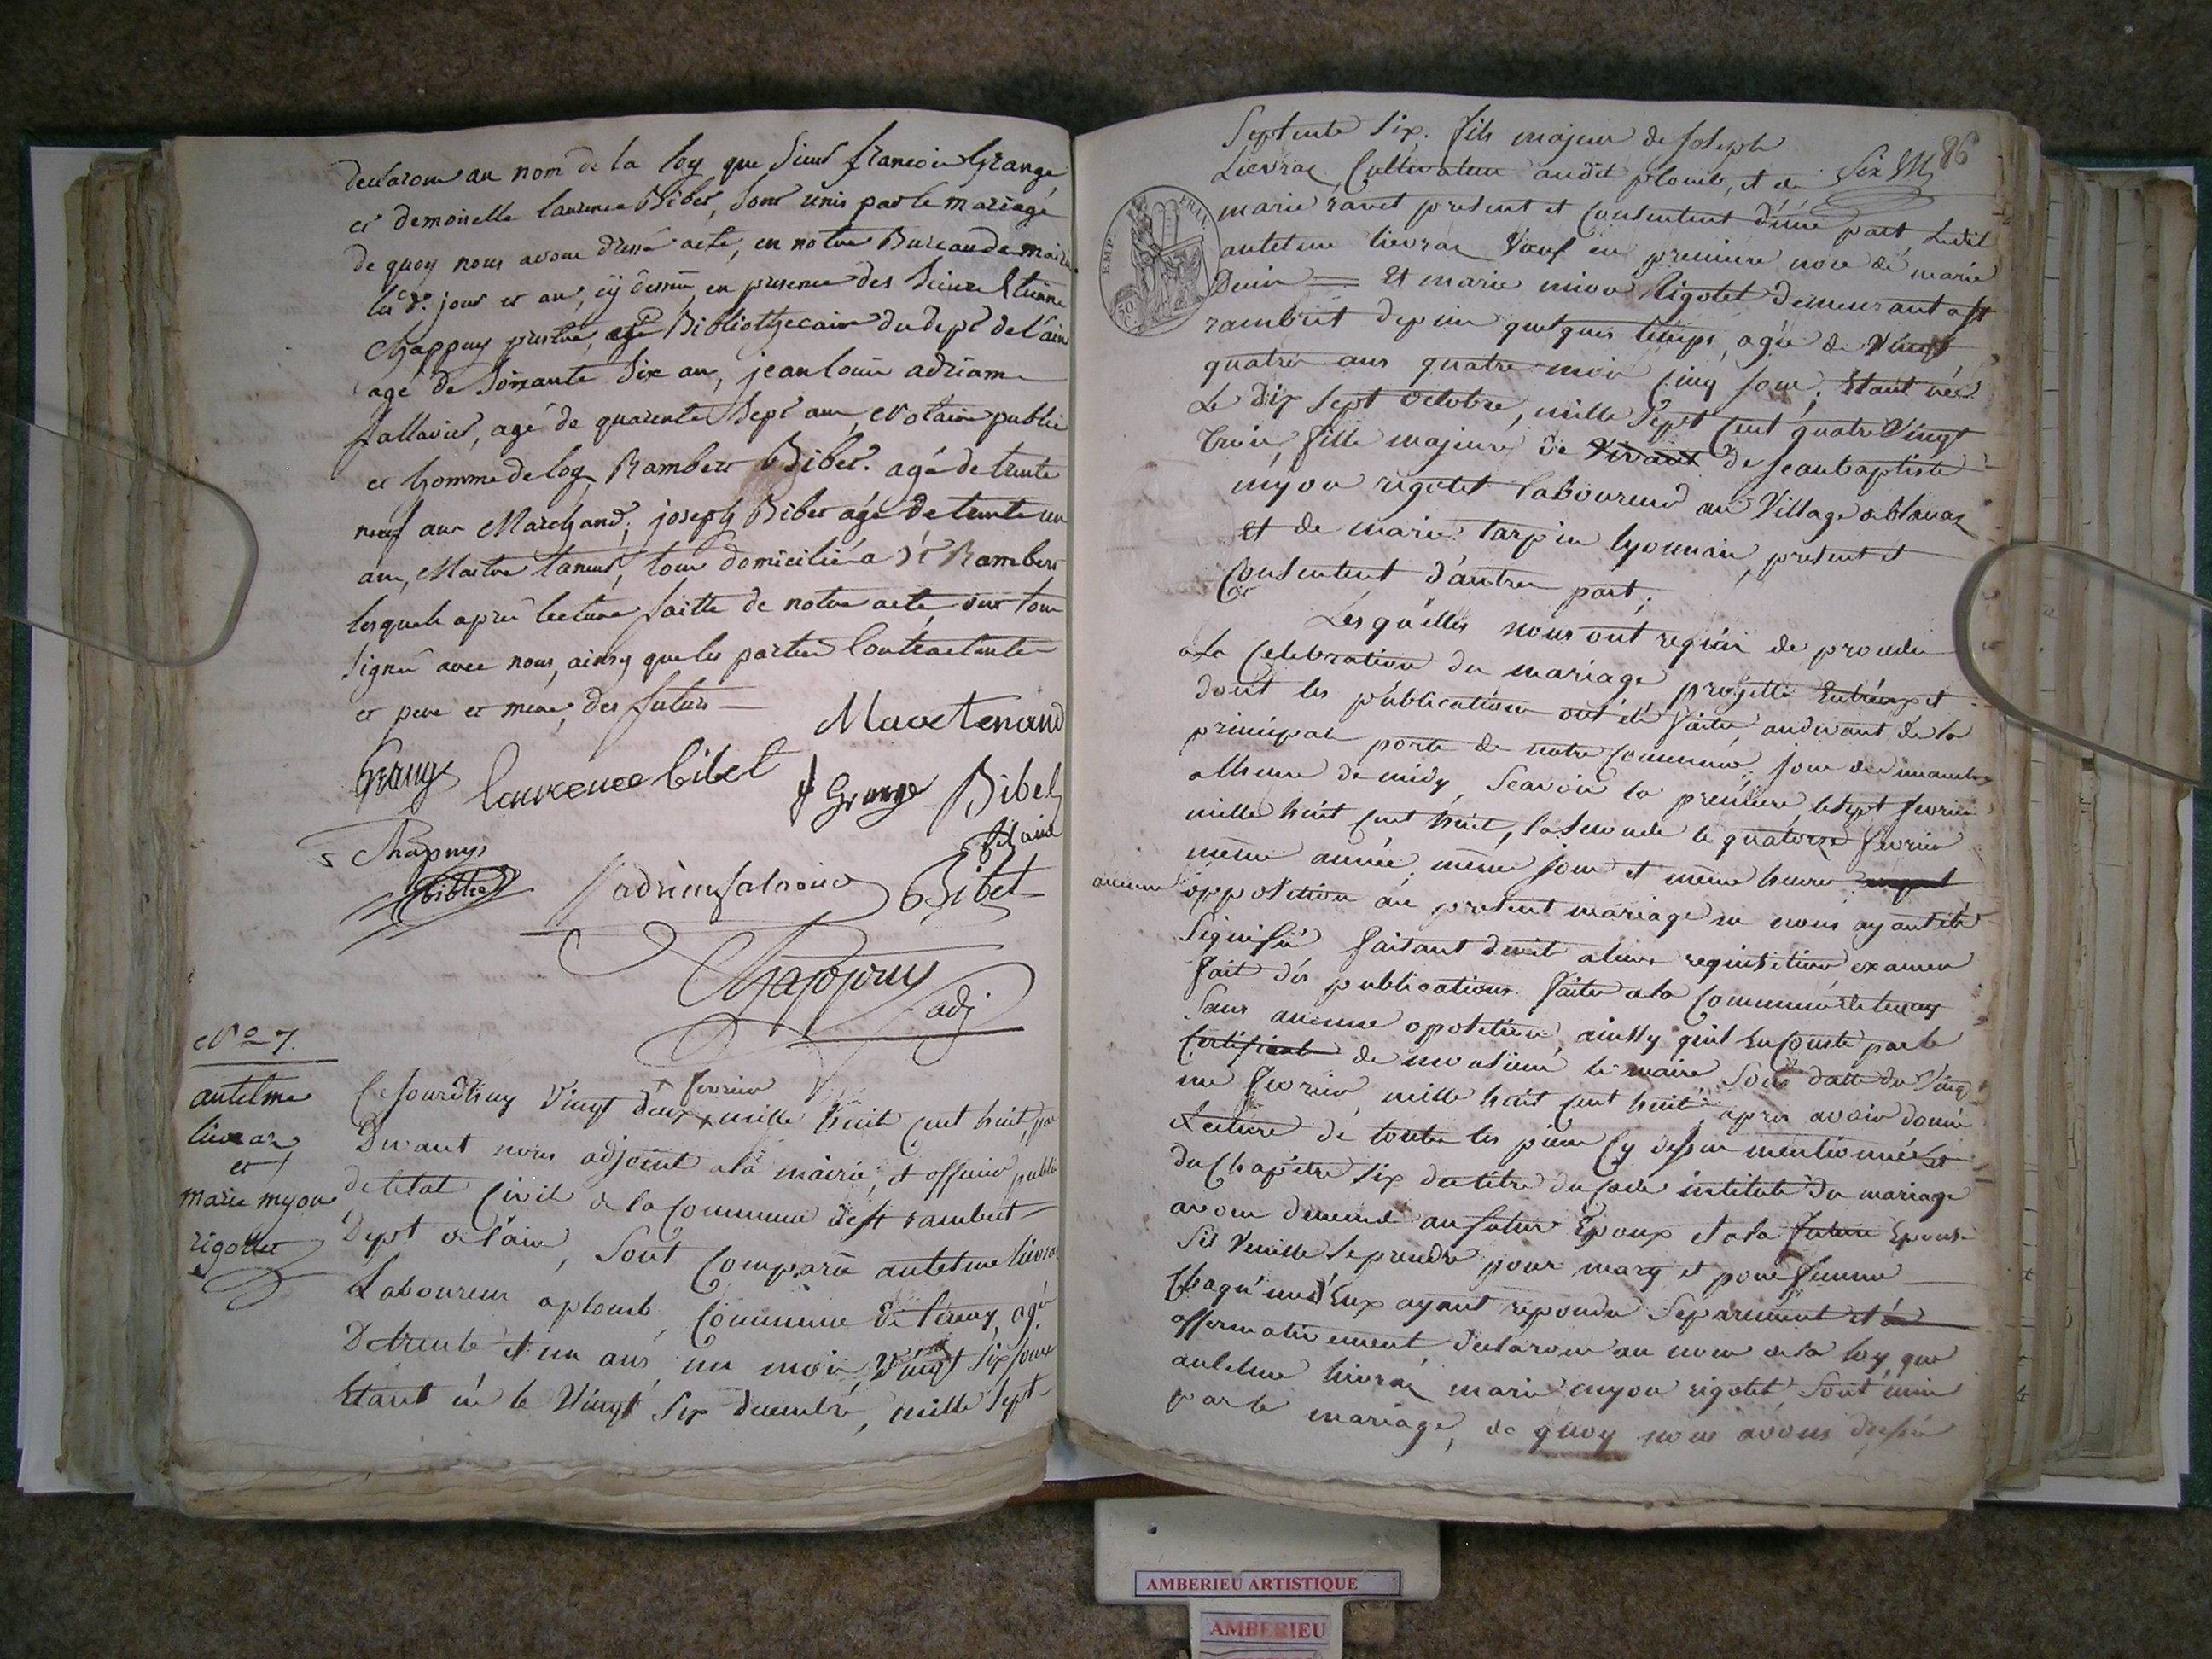 declarons au nom de la loy que Sieur francois Grange
et demoiselle laurence Bibet, Sont unis par le mariage
de quoy nous avons dressé acte, en notre Bureau de mairie
les d. jour et an, cy dessus, en presence des Sieurs Etienne
Chappuy prestre, Bibliothecaire du dept de l'ain
agé de Soixante Six ans, jean louis adriam
fallavier, agé de quarente Sept ans, Notaire public
et homme de loy, Rambert Bibet. agé de trente
neuf ans Marchand; joseph Bibet agé de trente un
ans, Maitre taneur, tous domicilié a St Rambert
lesquels apres lecture faitte de notre acte, ont tous
Signé avec nous, ainsy que les parties Contractantes
et pere et mere, des futurs
Grange
laurence bibet
Grange
Bibet
Chapuy
adrien
Bibet
Chappuy
adj
No 7.
antelme
lievraz
et
marie myon
rigollet
Cejourdhuy Vingt deux fevrier mille huit cent huit, par
Devant nous adjoint a la mairie, et officier public
de letat Civil de la Commune de st rambert
Dept de l'ain, Sont Comparu antelme lievraz
Laboureur a plomb, Commune de tenay, agé
De trente et un ans, un mois, Vingt Six jours
Etant né le Vingt Six decembre, mille Sept
86
Septente Six. fils majeur de Joseph
Lievraz Cultivateur audit plomb, et de
Six
EMP. FRAN.
marie ravet present et Consentent d'une part, Ledit
antelme lievraz Veuf en premiere noce de marie
Et marie mion Rigolet demeurant a st
rambert depuis quelques temps, agée de Vingt
quatre ans quatre mois Cinq jours, Etant née
Le dix Sept octobre, mille Sept Cent quatre Vingt
trois, fille majeure de Vivant de Jean baptiste
myon rigolet laboureur au Village de blanaz
et de marie tarpin lyonnais, present et
Consentent d'autre part;
Lesquelles nous ont requis de proceder
a la Celebration du mariage projetté Entreux et
dont les publications ont été faites audevant de la
principale porte de notre Commune, jour de dimanche
a lheure de midy, Scavoir la premiere, le Sept fevrier
mille huit cent huit, la Seconde le quatorze fevrier
même année, même jour et même heure
aucune
opposition au present mariage ne nous ayant été
Signifié faisant droit a leur requisition, examen
fait des publications faites a la Commune de tenay
Sans aucune oposition, ainssy quil En Conste par le
Certificat de monsieur le maire Sous datte du Vingt
un fevrier, mille huit cent huit, apres avoir donné
Lecture de toutes les pieces Cy dessus mentionnées et
du Chapitre Six du titre du Code intitulé du mariage
avons demandé au futur Epoux et a la future Epouse
Sil Veuille Se prendre pour mary et pour femme
Chaqu'un d'Eux ayant repondu Separement et
affirmativement declarons au nom de la loy, que
antelme lievraz marie myon rigolet Sont unis
par le mariage, de quoy nous avons dressé
AMBERIEU ARTISTIQUE
AMBERIEU